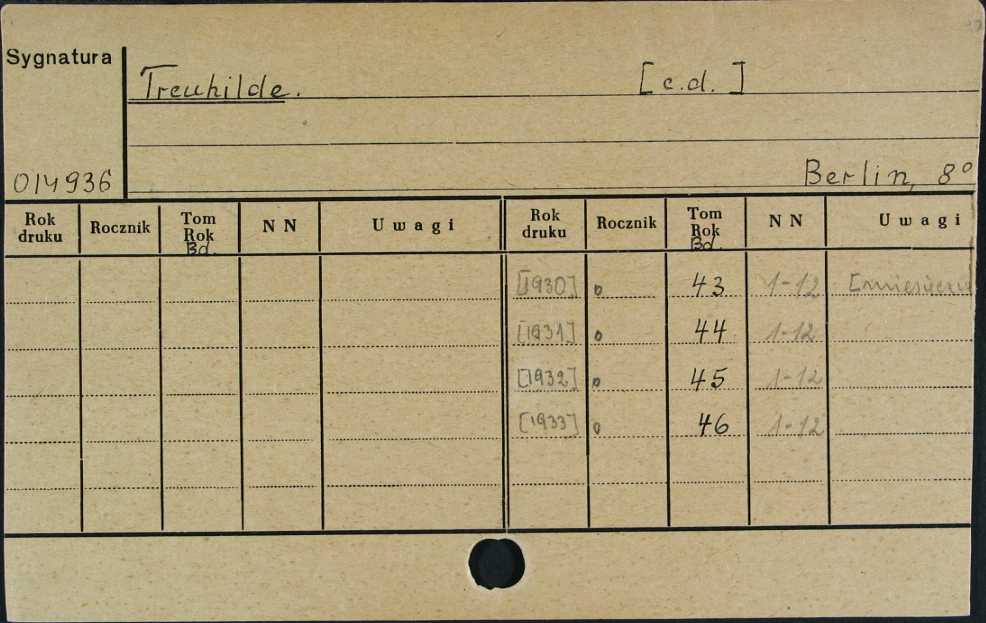 Sygnatura
Treuhilde. [c.d.]
014936
Berlin, 8°
Rok druku Rocznik Tom Rok Bd. NN Uwagi Rok druku Rocznik Tom Rok Bd. NN Uwagi
[1930] 43 1-12
[1931] 44 1-12
[1932] 45 1-12
[1933] 46 1-12